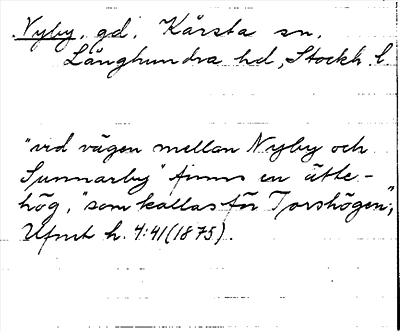 Nyby, gd, Kårsta sn,
Långhundra hd, Stockh. l.
"vid vägen mellan Nyby och
Sunnarby" finns en ätte-
hög, "som kallas för Torshögen",
Ufmt h. 4:41 (1875).